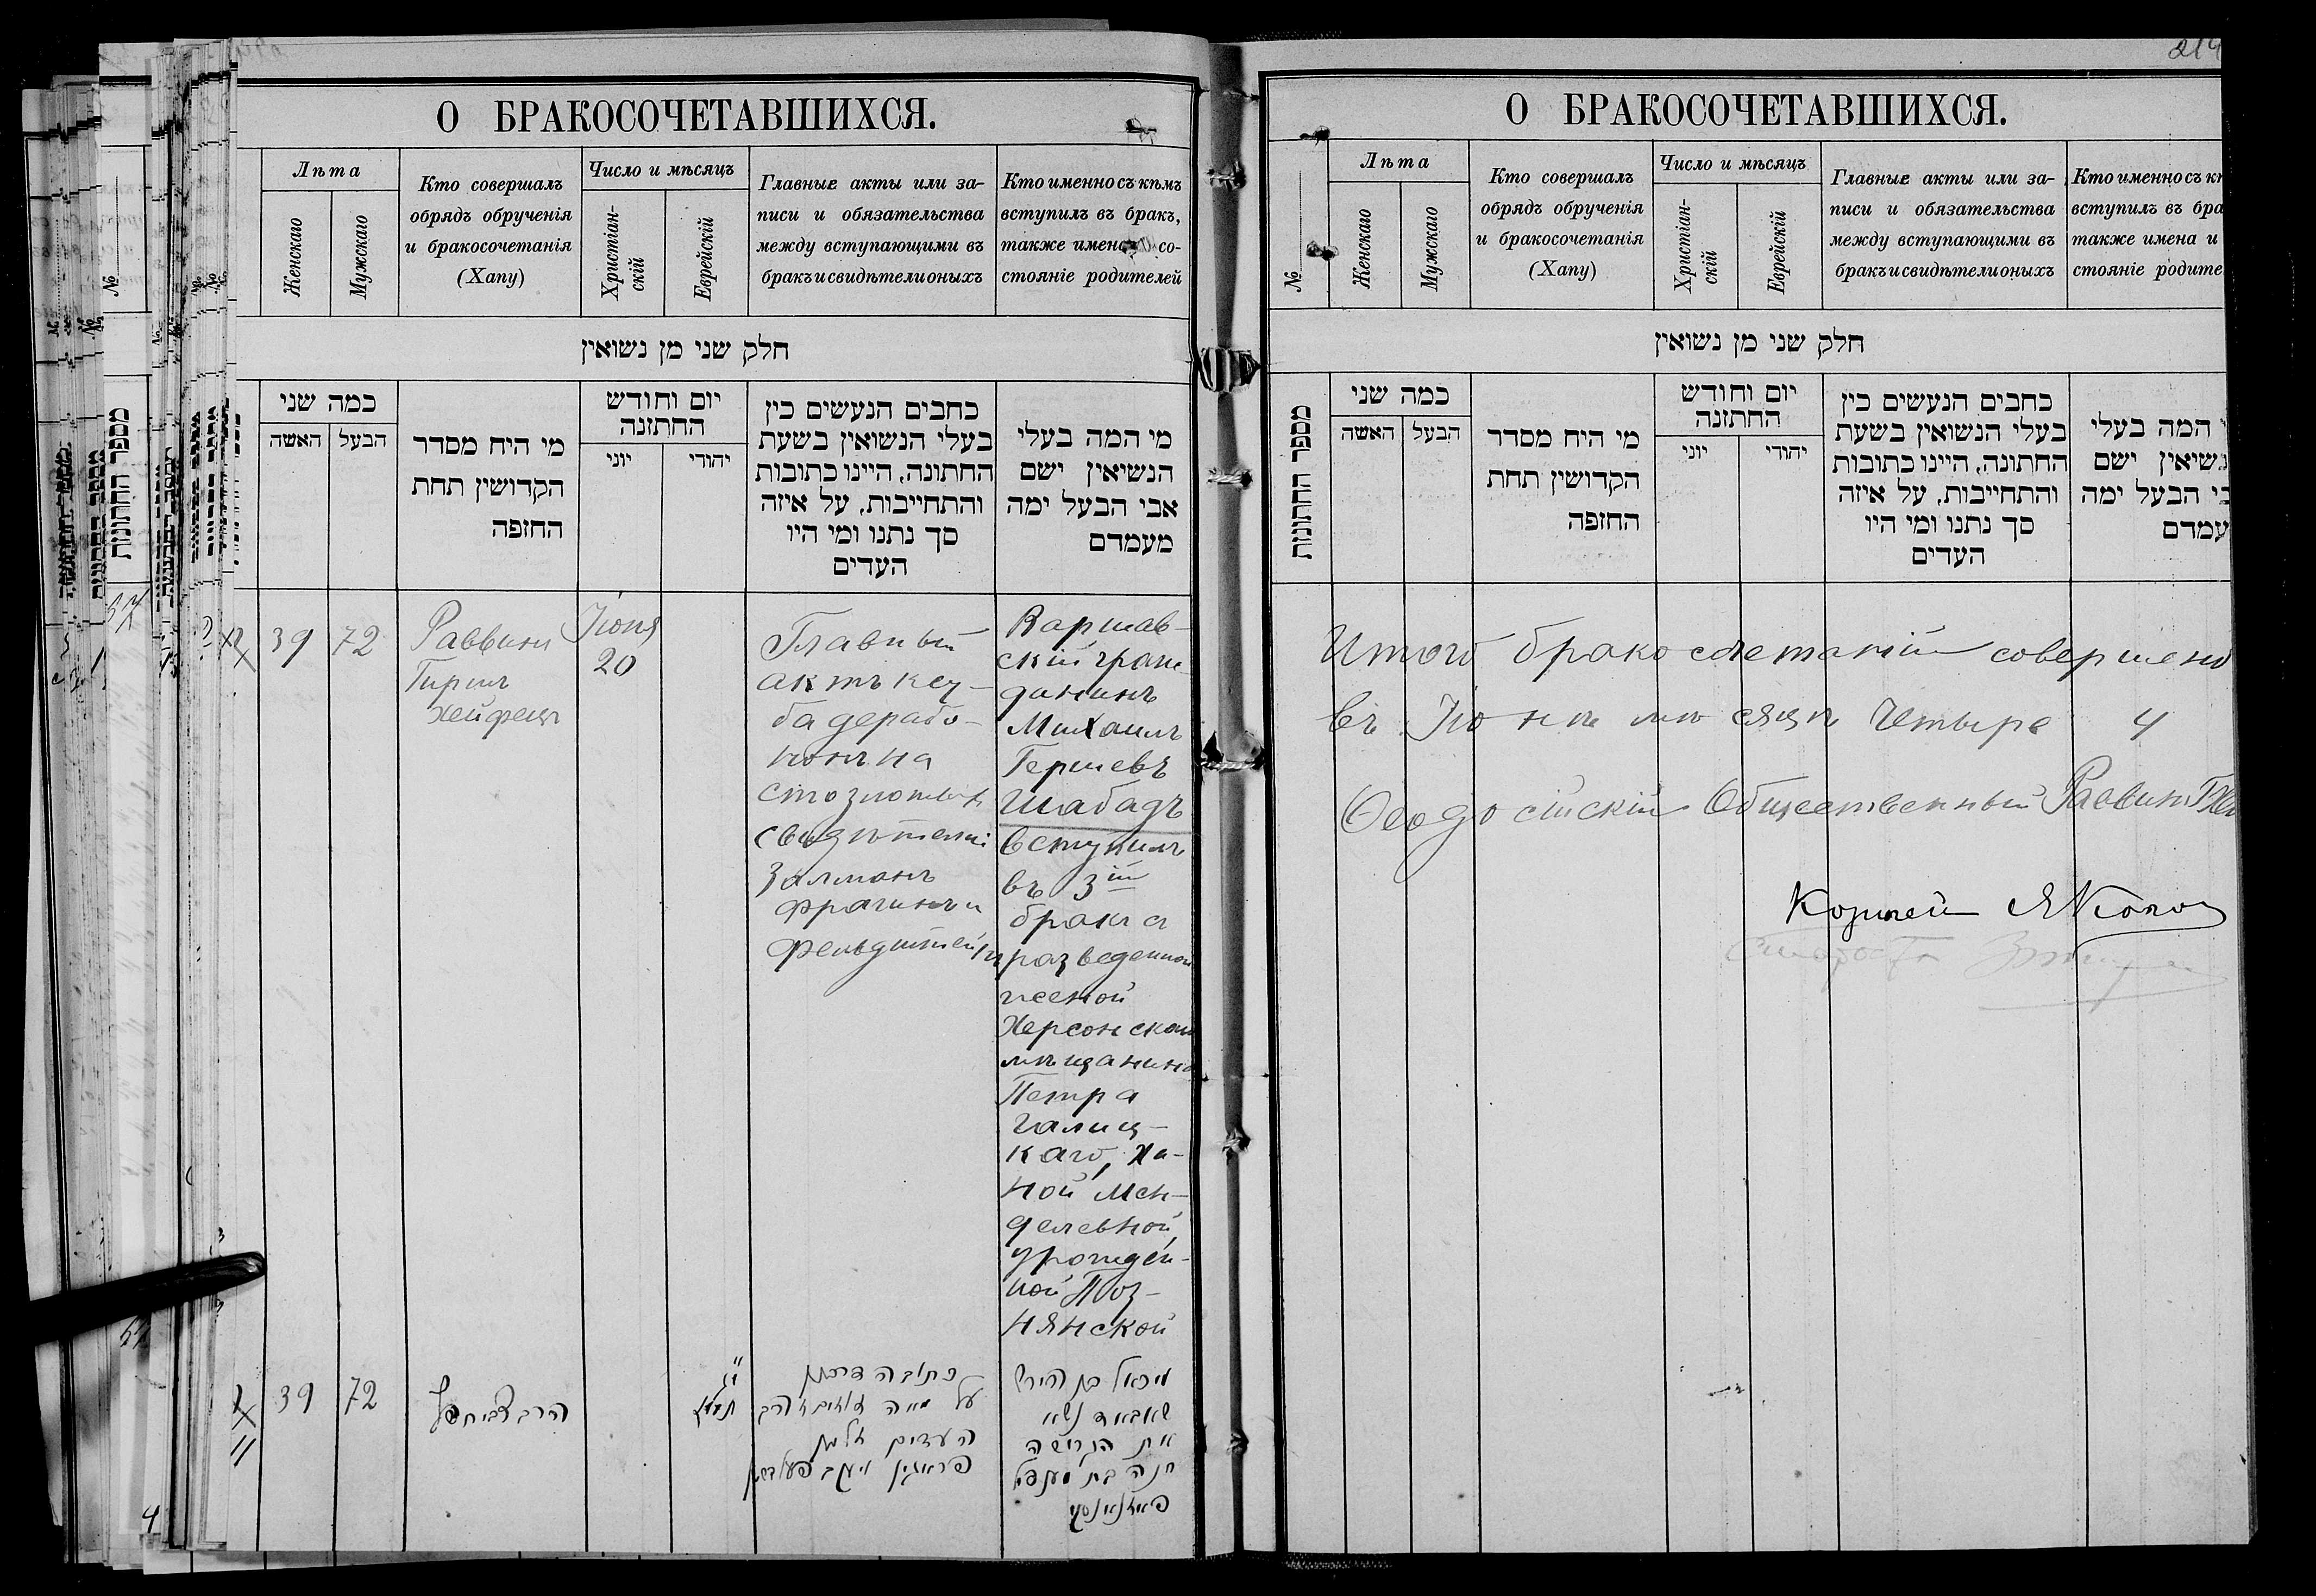 О БРАКОСОЧЕТАВШИХСЯ.
Лѣта
Женскаго
Мужскаго
Кто совершалъ
обрядъ обрученія
и бракосочетанія
(Хапу)
Число и мѣсяцъ
Христіан-
скій
Еврейскій
Главные акты или за-
писи и обязательства
между вступающими въ
бракъ и свидѣтели оныхъ
Кто именно съ кѣмъ
вступилъ въ бракъ,
также имена со-
стояніе родителей
חלק שני מן נשואין
כמה שני
האשה
הבעל
מי היח מסדר
הקדושין תחת
החזפה
יום וחודש
החתזנה
יוני
יהודי
כחבים הנעשים כין
בעלי הנשואין בשעת
החתונה, היינו כתובות
והתחייבות, על איזה
סך נתנו ומי היו
העדים
מי המה בעלי
הנשיאין ישם
אבי הבעל ימה
מעמדם
39
72
Раввинъ
Гиршъ
Хейфецъ
Іюня
20
Главный
актъ кету-
ба
на
сто злотыхъ
свидѣтели
Залманъ
Фрагинъ и
Варшав-
скій граж-
данинъ
Михаилъ
Гершевъ
Шабадъ
вступилъ
въ 3ій
бракъ съ
разведенной
женой
Херсонскаго
мѣщанина
Петра
Галиц-
каго, Ха-
ной Мен-
делевной,
урожден-
ной Поз-
нянской
39
72
הרב
כתובה דרכון
על מאה
העדים זלמן
פראגין
מיכאל בן הירש
שאבאד נשא
את הגרושה
חנה בת מענדיל
פאזנאנסקי
4
214
О БРАКОСОЧЕТАВШИХСЯ.
№
Лѣта
Женскаго
Мужскаго
Кто совершалъ
обрядъ обрученія
и бракосочетанія
(Хапу)
Число и мѣсяцъ
Христіан-
скій
Еврейскій
Главные акты или за-
писи и обязательства
между вступающими въ
бракъ и свидѣтели оныхъ
Кто именно съ кѣ
вступилъ въ бра
также имена и
стояніе родите
חלק שני מן נשואין
מספר החתונות
כמה שני
האשה
הבעל
מי היח מסדר
הקדושין תחת
החזפה
יום וחודש
החתזנה
יוני
יהודי
כחבים הנעשים כין
בעלי הנשואין בשעת
החתונה, היינו כתובות
והתחייבות, על איזה
סך נתנו ומי היו
העדים
המה בעלי
נשיאין ישם
בי הבעל ימה
עמדם
Итого бракосочетаній совершено
въ Іюнѣ мѣсяцѣ четыре 4
Ѳеодосійскій Общественный Раввинъ
Староста